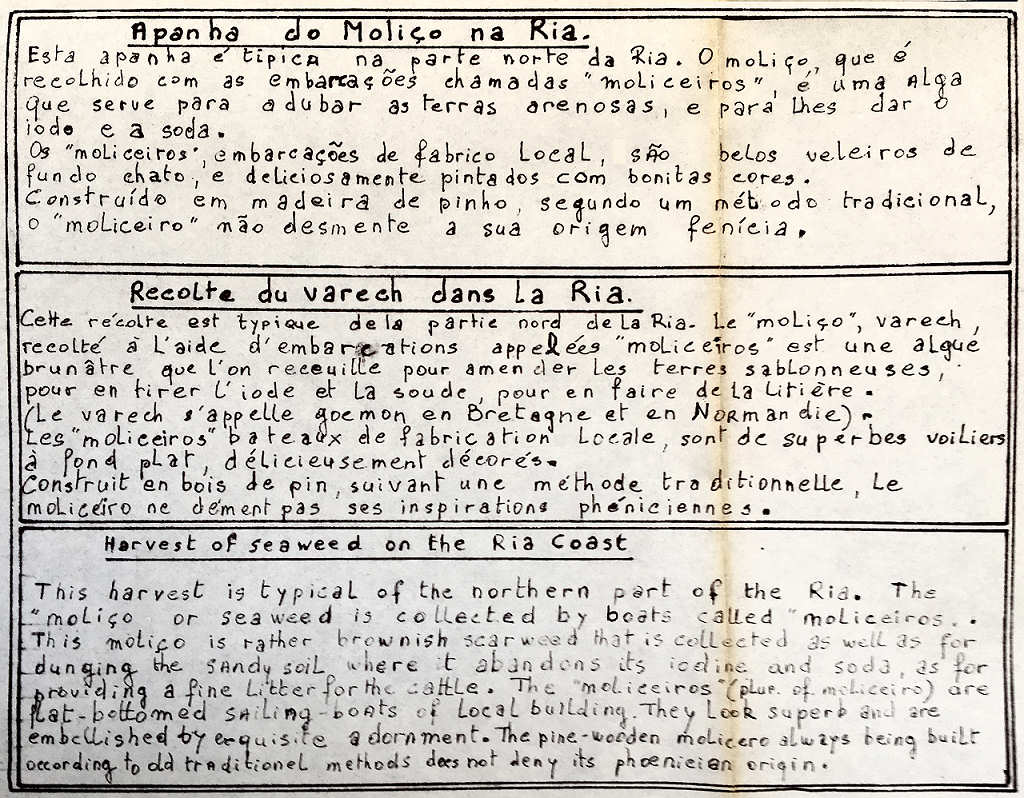 Apanha do Moliço na Ria.
Esta apanha é típica na parte norte da Ria. O moliço, que é
recolhido com as embarcações chamadas "moliceiros", é uma Alga
que serve para adubar as terras arenosas, e para lhes dar o
iodo e a soda.
Os "moliceiros", embarcações de fabrico Local, são belos veleiros de
fundo chato, e deliciosamente pintados com bonitas cores.
Construído em madeira de pinho, segundo um método tradicional,
o "moliceiro" não desmente a sua origem fenícia.
Recolte du varech dans La Ria.
Cette récolte est typique de la partie nord de La Ria. Le "moliço", varech,
recolté à L'aide d'embarcations appelées "moliceiros" est une algue
brunâtre que l'on receuille pour amender Les terres sablonneuses,
pour en tirer L'iode et La soude, pour en faire de la Litière.
(Le varech s'appelle goemon en Bretagne et en Normandie).
Les "moliceiros" bateaux de fabrication Locale, sont de superbes voiliers
à fond plat, délicieusement décorés.
Construit en bois de pin, suivant une méthode traditionnelle, Le
moliceiro ne dément pas ses inspirations phéniciennes.
Harvest of seaweed on the Ria Coast
This harvest is typical of the northern part of the Ria. The
"moliço or seaweed is collected by boats called "moliceiros..
This moliço is rather brownish scarweed that is collected as well as for
dunging the sandy soil where it abandons its iodine and soda, as for
providing a fine Litter for the cattle. The "moliceiros" (plur. of moliceiro) are
flat-bottomed sailing-boats of Local building. They Look superb and are
embellished by exquisite adornment. The pine-wooden molicero always being built
according to old traditionel methods does not deny its phoenician origin.